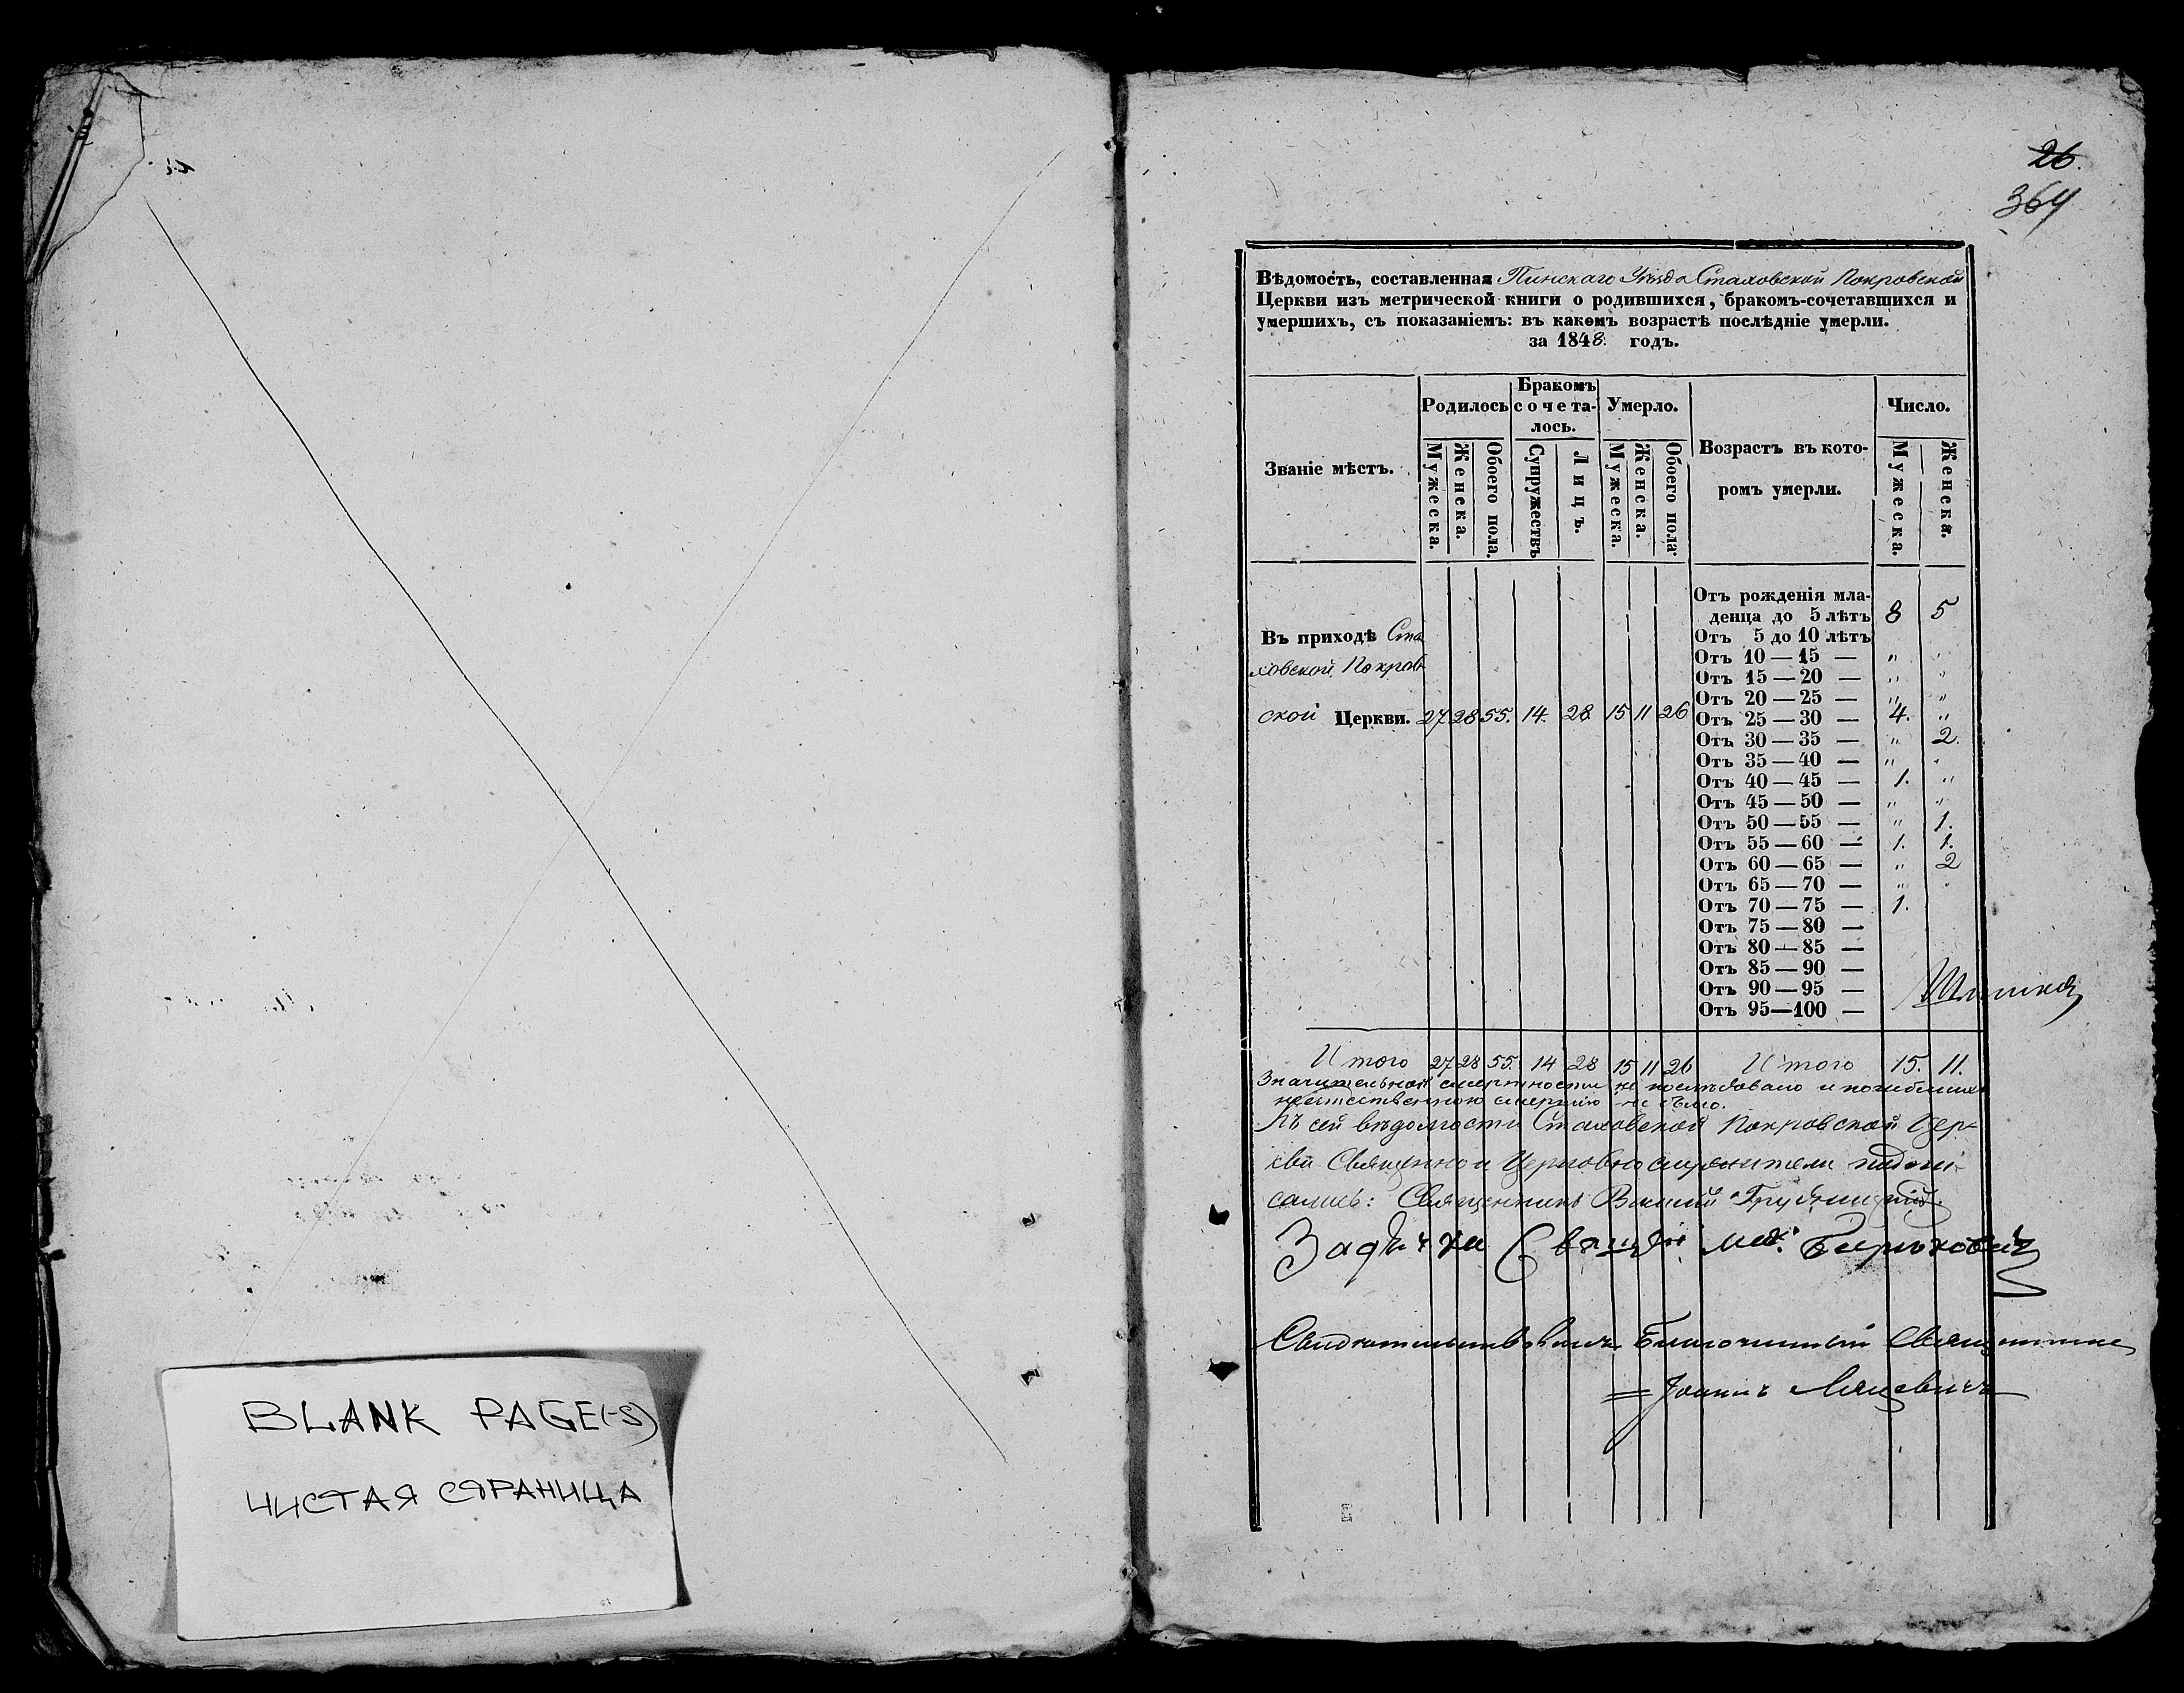 BLANK PAGE(-S)
ЧИСТАЯ СТРАНИЦА
26.
364
Вѣдомость, составленная Пинскаго Уѣзда Стаховской Покровской
Церкви изъ метрической книги о родившихся, бракомъ-сочетавшихся и
умершихъ, съ показаніемъ: въ какомъ возрастѣ послѣдніе умерли.
за 1848. годъ.
Званіе мѣстъ.
Родилось
Мужеска.
Женска.
Обоего пола.
Бракомъ
сочета-
лось.
Супружествъ
Лицъ.
Умерло.
Мужеска.
Женска.
Обоего пола.
Возрастъ въ кото-
ромъ умерли.
Число.
Мужеска.
Женска.
Въ приходѣ Ста
ховской Покров
ской Церкви. 27 28 55. 14. 28. 15 11 26
Отъ рожденія мла-
денца до 5 лѣтъ 8 5
Отъ 5 до 10 лѣтъ
Отъ 10 — 15 — " "
Отъ 15 — 20 — " "
Отъ 20 — 25 — " "
Отъ 25 — 30 — 4. "
Отъ 30 — 35 — " 2.
Отъ 35 — 40 — " "
Отъ 40 — 45 — 1. "
Отъ 45 — 50 — " "
Отъ 50 — 55 — " 1.
Отъ 55 — 60 — 1. 1.
Отъ 60 — 65 — " 2
Отъ 65 — 70 — " "
Отъ 70 — 75 — 1.
Отъ 75 — 80 —
Отъ 80 — 85 —
Отъ 85 — 90 —
Отъ 90 — 95 —
Отъ 95 — 100 —
Итого 27 28 55. 14 28 15 11 26 Итого 15. 11.
Значительной смертности не послѣдовало и погибшихъ
неестественною смертію не было.
Къ сей вѣдомости Стаховской Покровской Цер-
кви Священно и Церковнослужители подпи-
сались: Священникъ
Благочинный Священникъ
Іоаннъ